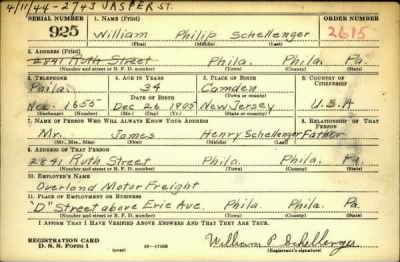 4/11/44-2743 JASPER ST.
SERIAL NUMBER 1. NAME (Print) ORDER NUMBER
925 William Philip Schellenger 2615
(First) (Middle) (Last)
2. ADDRESS (Print)
2841 Ruth Street Phila. Phila. Pa.
(Number and street or R. F. D. number) (Town) (County) (State)
3. TELEPHONE 4. AGE IN YEARS 5. PLACE OF BIRTH 6. COUNTRY OF CITIZENSHIP
Phila 34 Camden
DATE OF BIRTH (Town or county)
1655 Dec 26 1905 New Jersey U.S.A
(Exchange) (Number) (Mo.) (Day) (Yr.) (State or country)
7. NAME OF PERSON WHO WILL ALWAYS KNOW YOUR ADDRESS 8. RELATIONSHIP OF THAT PERSON
Mr. James Henry Schellenger Father
(Mr., Mrs., Miss) (First) (Middle) (Last)
9. ADDRESS OF THAT PERSON
2841 Ruth Street Phila. Phila. Pa.
(Number and street or R. F. D. number) (Town) (County) (State)
10. EMPLOYER'S NAME
Overland Motor Freight
11. PLACE OF EMPLOYMENT OR BUSINESS
"D" Street above Erie Ave. Phila. Phila. Pa.
(Number and street or R. F. D. number) (Town) (County) (State)
I AFFIRM THAT I HAVE VERIFIED ABOVE ANSWERS AND THAT THEY ARE TRUE.
REGISTRATION CARD
D. S. S. Form 1 William P. Schellenger
(Registrant's signature)